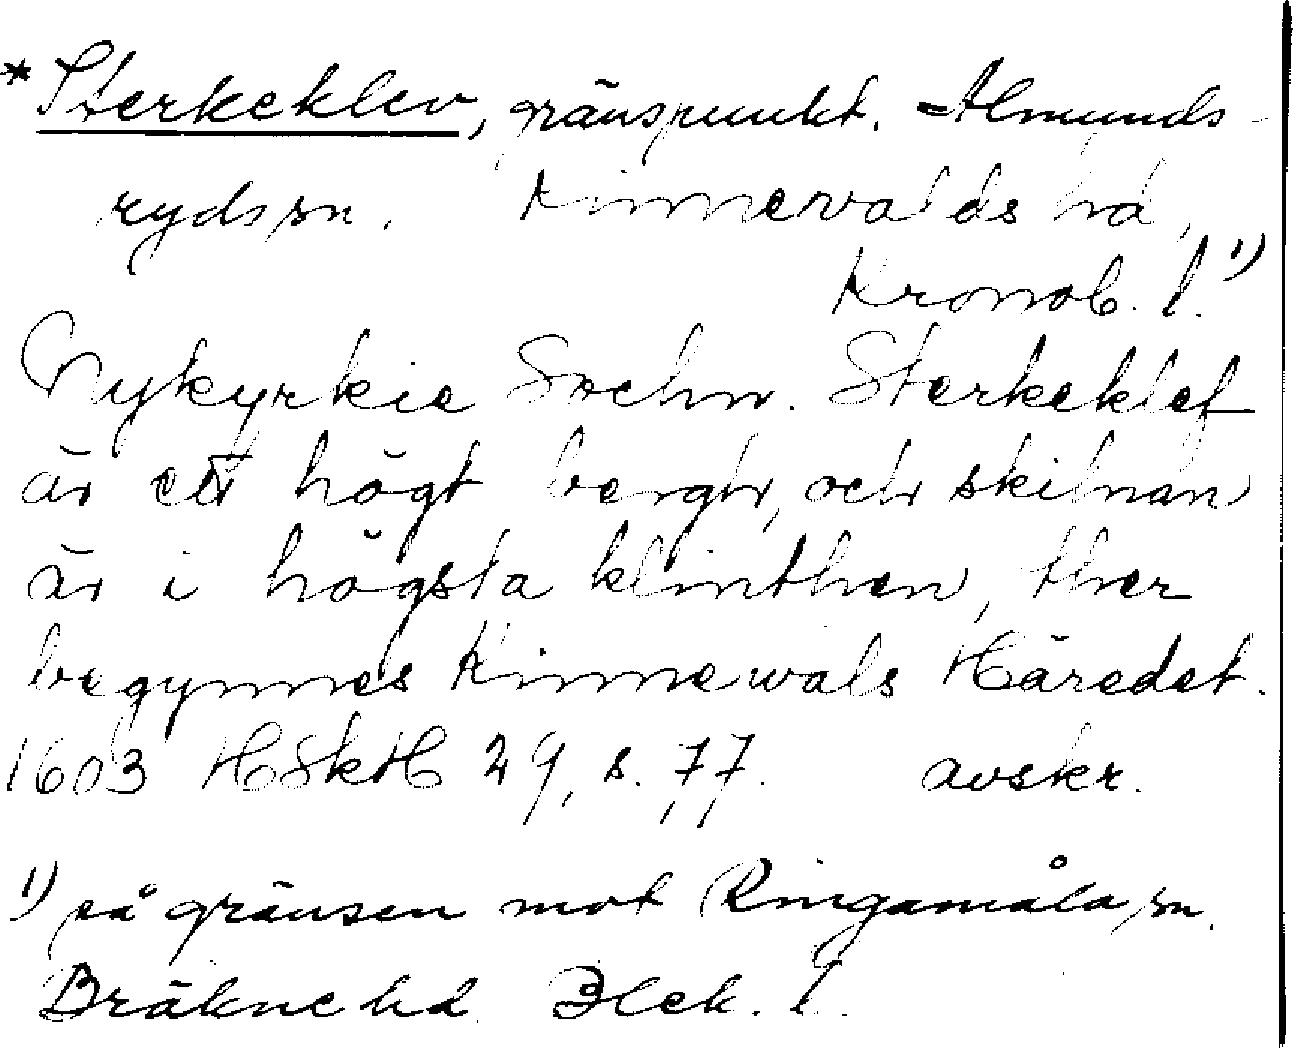 *Sterkeklev, gränspunkt. Almunds-
ryds sn. Kinnevalds hd,
Kronob. l.¹⁾
Nykyrkie Sochn. Sterkeklef
är ett högt bergh, och skilnan
är i högsta klinthen, ther
begynnes Kinnewals Häredet.
1603 HSkH 29, s. 77. avskr.
¹⁾ på gränsen mot Ringamåla sn.
Bräkne hd Blek. l.